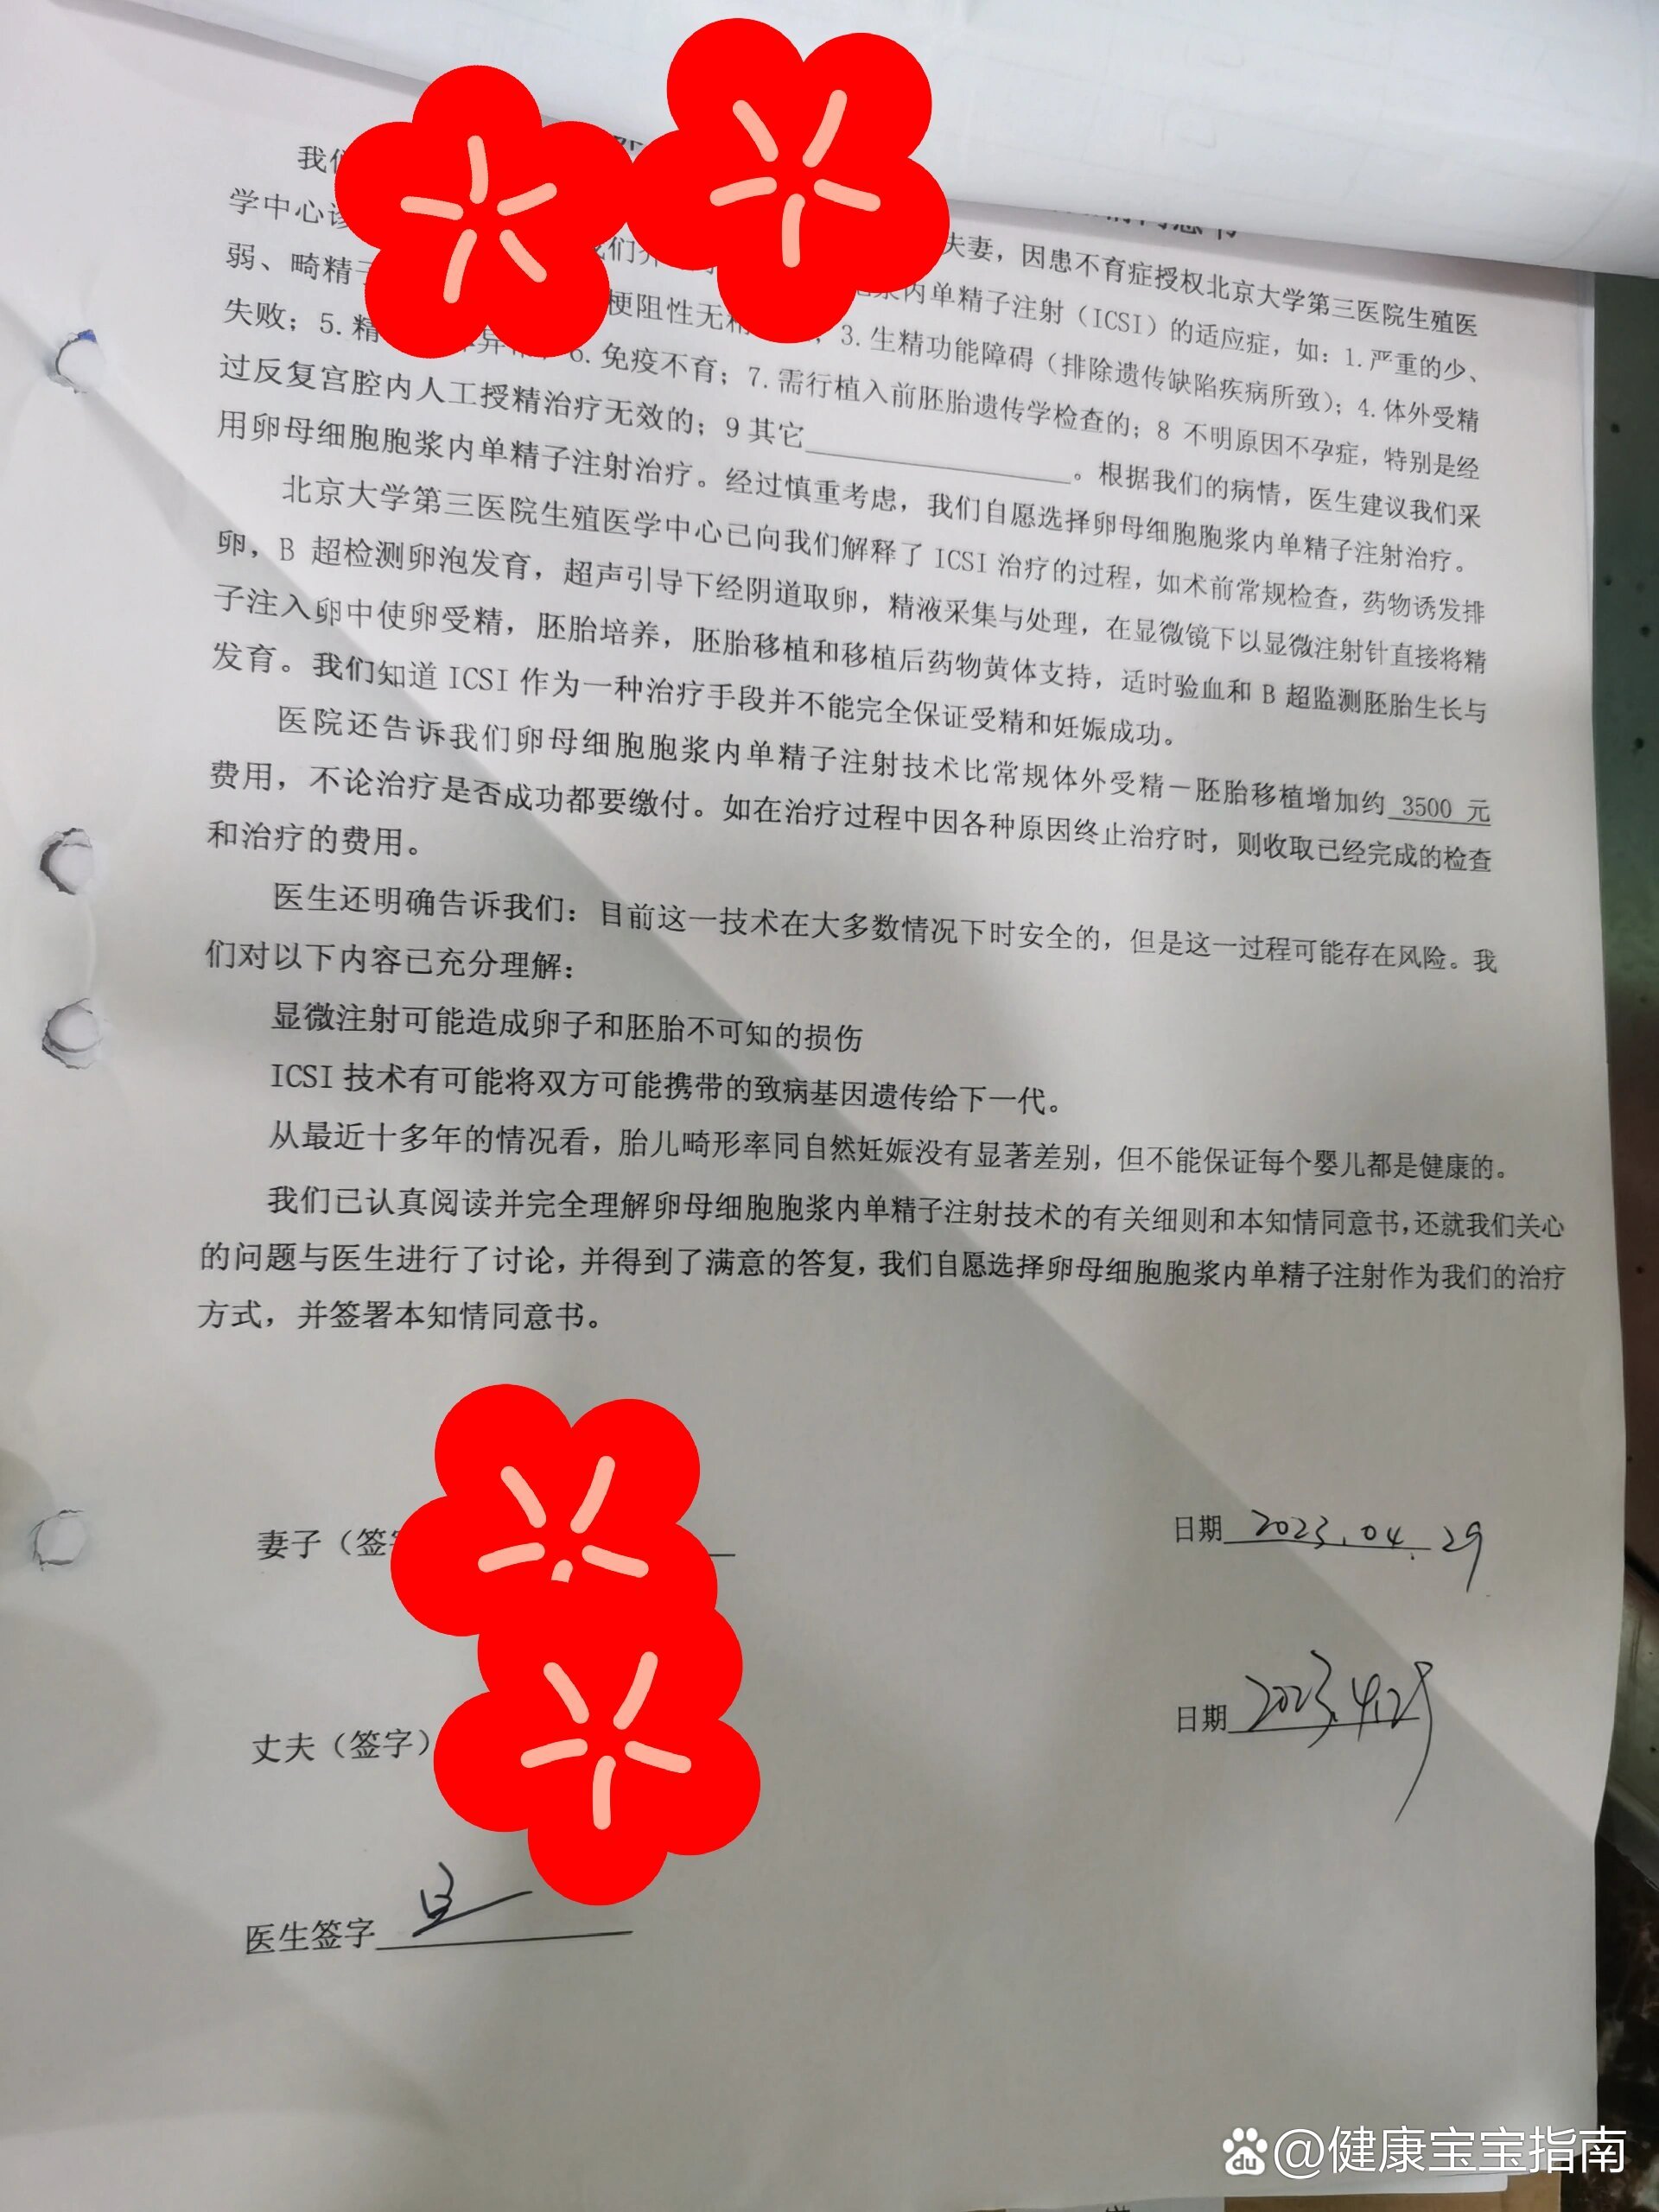 知情同意书
我们 夫妻，因患不育症授权北京大学第三医院生殖医
学中心该 我们 浆内单精子注射（ICSI）的适应症，如：1.严重的少、
弱、畸精子 梗阻性无精 3.生精功能障碍（排除遗传缺陷疾病所致）；4.体外受精
失败；5.精 6.免疫不育；7.需行植入前胚胎遗传学检查的；8 不明原因不孕症，特别是经
过反复宫腔内人工授精治疗无效的；9 其它 。根据我们的病情，医生建议我们采
用卵母细胞胞浆内单精子注射治疗。经过慎重考虑，我们自愿选择卵母细胞胞浆内单精子注射治疗。
北京大学第三医院生殖医学中心已向我们解释了 ICSI 治疗的过程，如术前常规检查，药物诱发排
卵，B 超检测卵泡发育，超声引导下经阴道取卵，精液采集与处理，在显微镜下以显微注射针直接将精
子注入卵中使卵受精，胚胎培养，胚胎移植和移植后药物黄体支持，适时验血和 B 超监测胚胎生长与
发育。我们知道 ICSI 作为一种治疗手段并不能完全保证受精和妊娠成功。
医院还告诉我们卵母细胞胞浆内单精子注射技术比常规体外受精－胚胎移植增加约 3500 元
费用，不论治疗是否成功都要缴付。如在治疗过程中因各种原因终止治疗时，则收取已经完成的检查
和治疗的费用。
医生还明确告诉我们：目前这一技术在大多数情况下时安全的，但是这一过程可能存在风险。我
们对以下内容已充分理解：
显微注射可能造成卵子和胚胎不可知的损伤
ICSI 技术有可能将双方可能携带的致病基因遗传给下一代。
从最近十多年的情况看，胎儿畸形率同自然妊娠没有显著差别，但不能保证每个婴儿都是健康的。
我们已认真阅读并完全理解卵母细胞胞浆内单精子注射技术的有关细则和本知情同意书，还就我们关心
的问题与医生进行了讨论，并得到了满意的答复，我们自愿选择卵母细胞胞浆内单精子注射作为我们的治疗
方式，并签署本知情同意书。
妻子（签字 日期 2023.04.29
丈夫（签字） 日期 2023.4.29
医生签字
du @健康宝宝指南